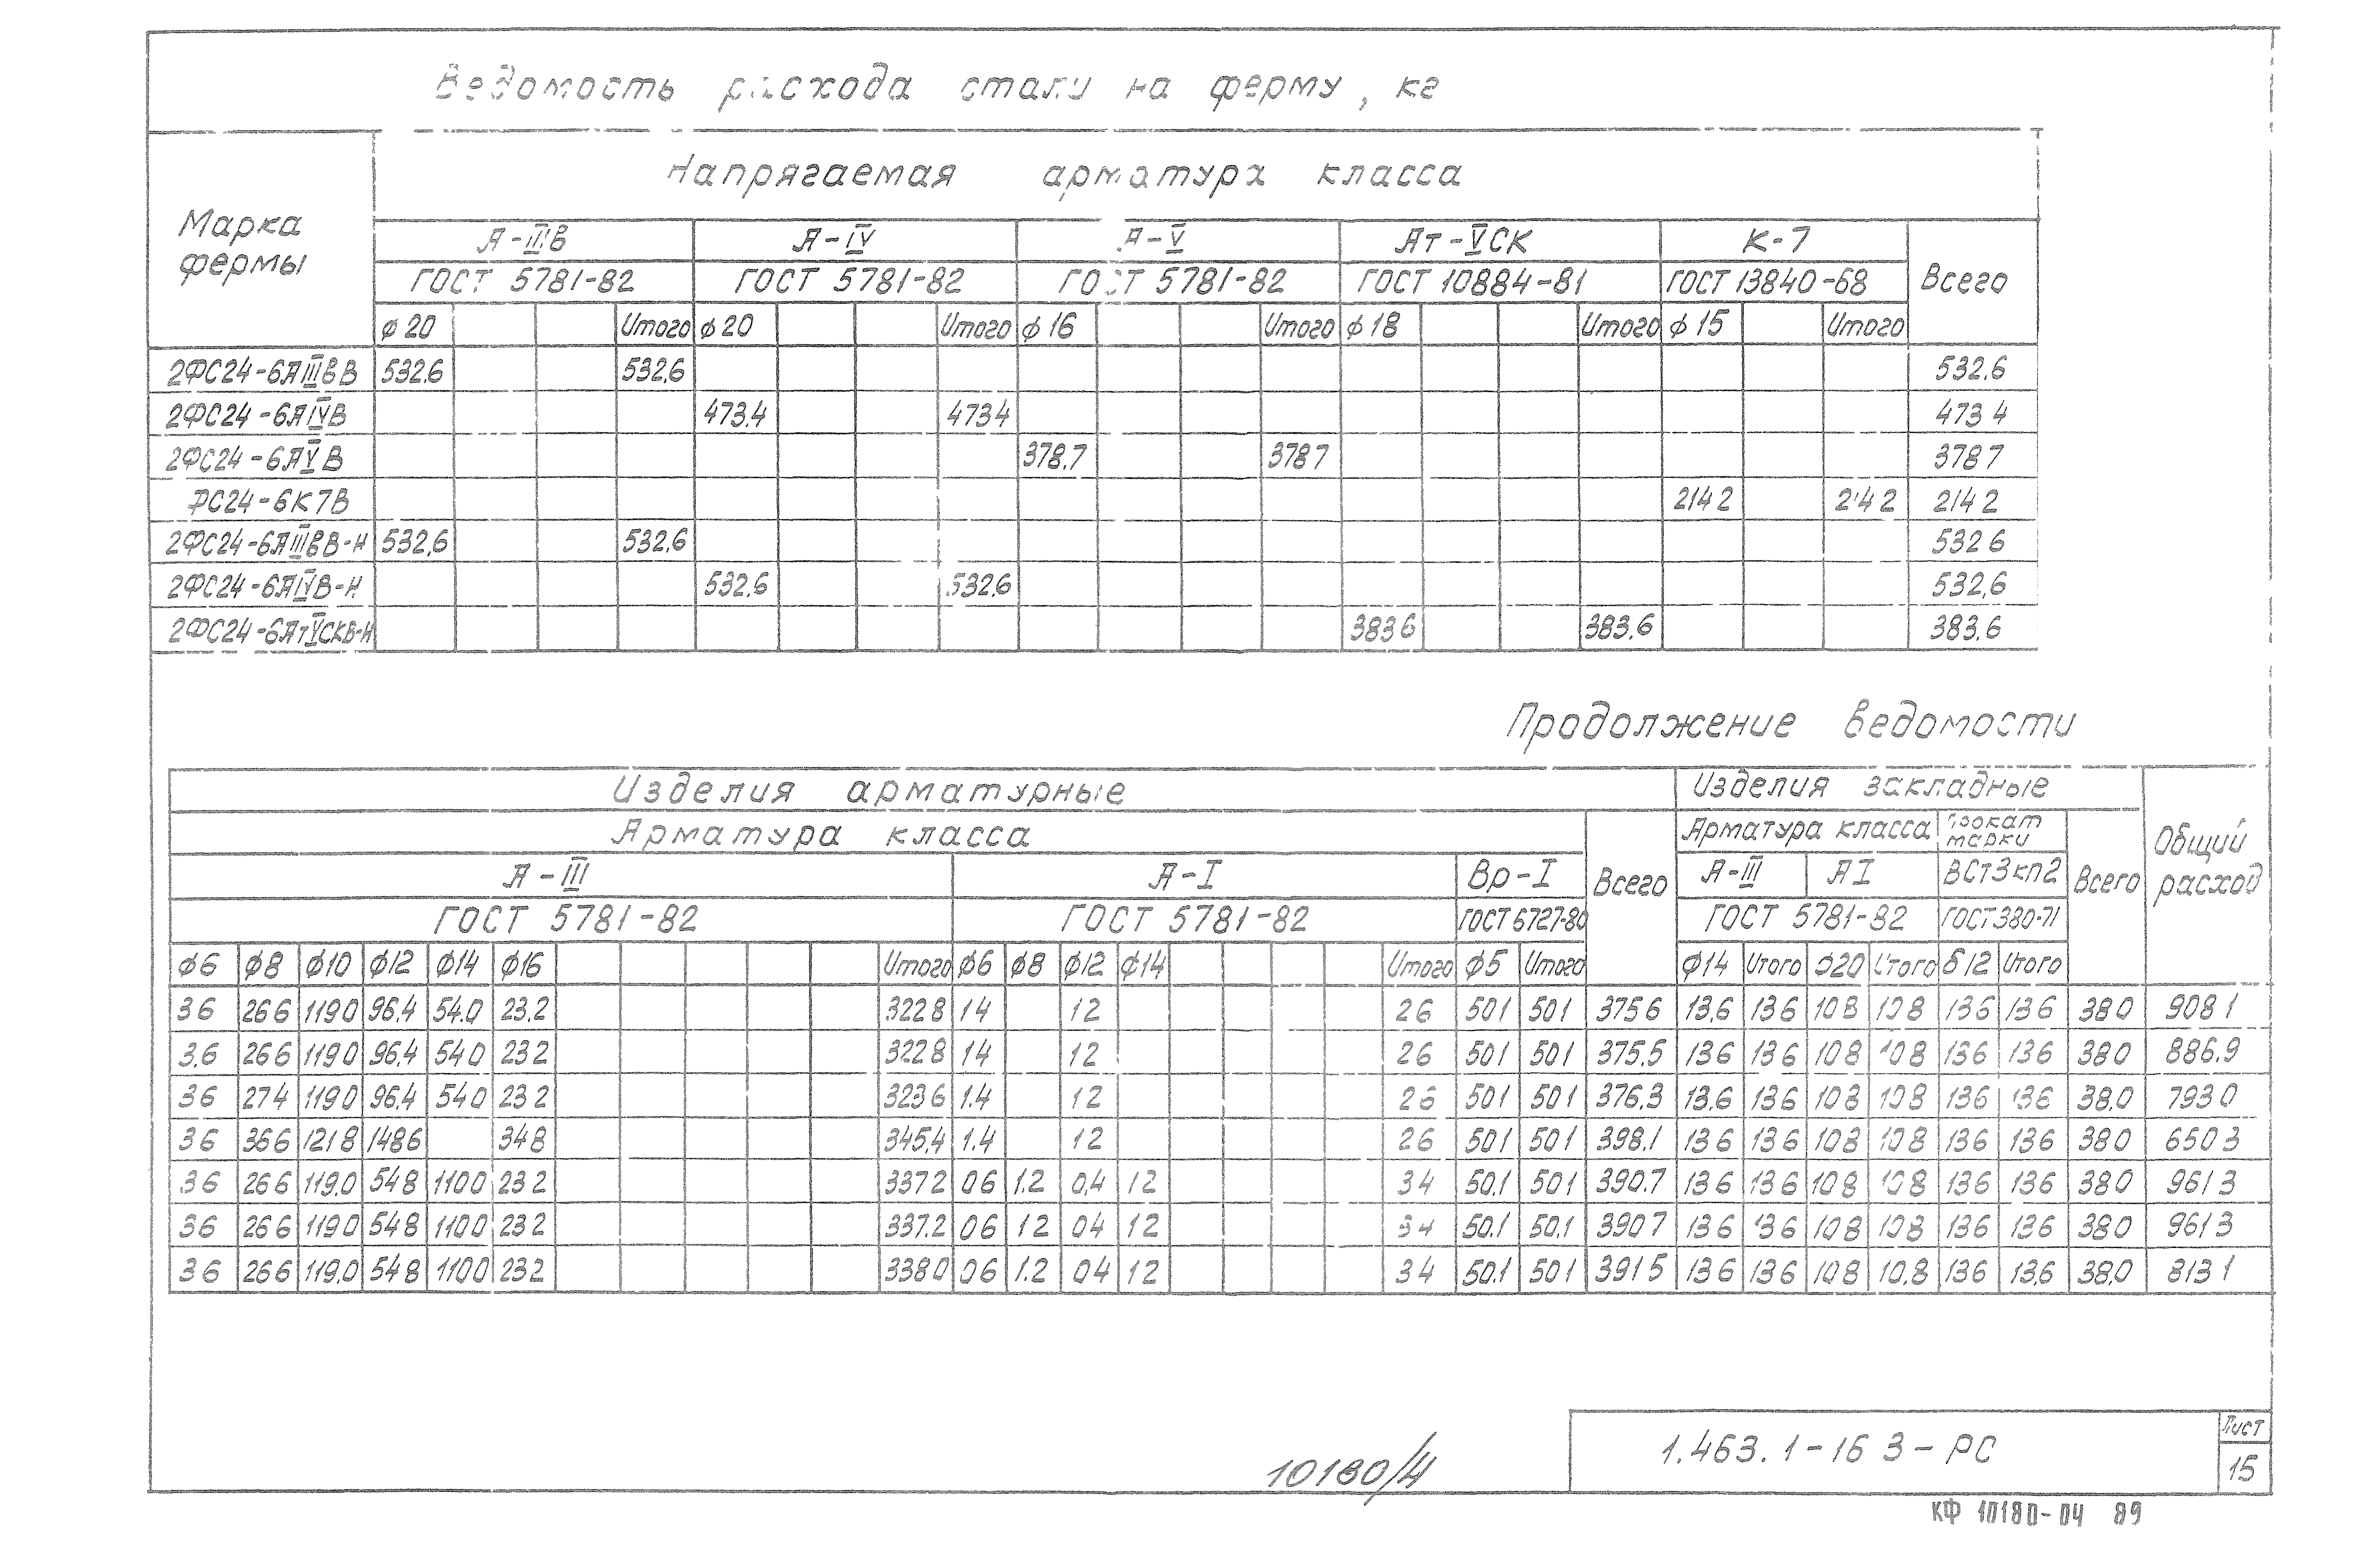 Ведомость расхода стали на ферму, кг
Марка фермы
Напрягаемая арматура класса
А-IIIв А-IV А-V Ат-VСК К-7 Всего
ГОСТ 5781-82 ГОСТ 5781-82 ГОСТ 5781-82 ГОСТ 10884-81 ГОСТ 13840-68
ф20 Итого ф20 Итого ф16 Итого ф18 Итого ф15 Итого
2ФС24-6АIIIвВ 532.6 532.6 532.6
2ФС24-6АIVВ 473.4 473 4 473 4
2ФС24-6АVВ 378.7 378 7 378 7
ФС24-6К7В 214 2 214 2 214 2
2ФС24-6АIIIвВ-Н 532.6 532.6 532 6
2ФС24-6АIVВ-Н 532.6 532.6 532.6
2ФС24-6АтVСКВ-Н 383 6 383.6 383.6
Продолжение ведомости
Изделия арматурные Изделия закладные Общий расход
Арматура класса Всего Арматура класса Прокат марки Всего
А-III А-I Вр-I А-III АI ВСт3кп2
ГОСТ 5781-82 ГОСТ 5781-82 ГОСТ 6727-80 ГОСТ 5781-82 ГОСТ 380-71
ф6 ф8 ф10 ф12 ф14 ф16 Итого ф6 ф8 ф12 ф14 Итого ф5 Итого ф14 Итого ф20 Итого δ12 Итого
3 6 26 6 119 0 96.4 54.0 23.2 322 8 1 4 1 2 2 6 50 1 50 1 375 6 13.6 13 6 10 8 10 8 13 6 13 6 38 0 908 1
3.6 26 6 119 0 96.4 54 0 23 2 322 8 1 4 1 2 2 6 50 1 50 1 375.5 13 6 13 6 10 8 10 8 13 6 13 6 38 0 886.9
3 6 27 4 119 0 96.4 54 0 23 2 323 6 1.4 1 2 2 6 50 1 50 1 376.3 13.6 13 6 10 8 10 8 13 6 13 6 38.0 793 0
3 6 36 6 121 8 148 6 34 8 345.4 1.4 1 2 2 6 50 1 50 1 398.1 13 6 13 6 10 8 10 8 13 6 13 6 38 0 650 3
3 6 26 6 119.0 54 8 110 0 23 2 337 2 0 6 1.2 0.4 1 2 3 4 50.1 50 1 390.7 13 6 13 6 10 8 10 8 13 6 13 6 38 0 961 3
3 6 26 6 119 0 54 8 110 0 23 2 337.2 0 6 1 2 0 4 1 2 3 4 50.1 50.1 390 7 13 6 13 6 10 8 10 8 13 6 13 6 38 0 961 3
3 6 26 6 119.0 54 8 110 0 23 2 338 0 0 6 1.2 0 4 1 2 3 4 50.1 50 1 391 5 13 6 13 6 10 8 10.8 13 6 13.6 38.0 813 1
10180/4
1.463.1-16 3-РС
Лист
15
КФ 10180-04 89